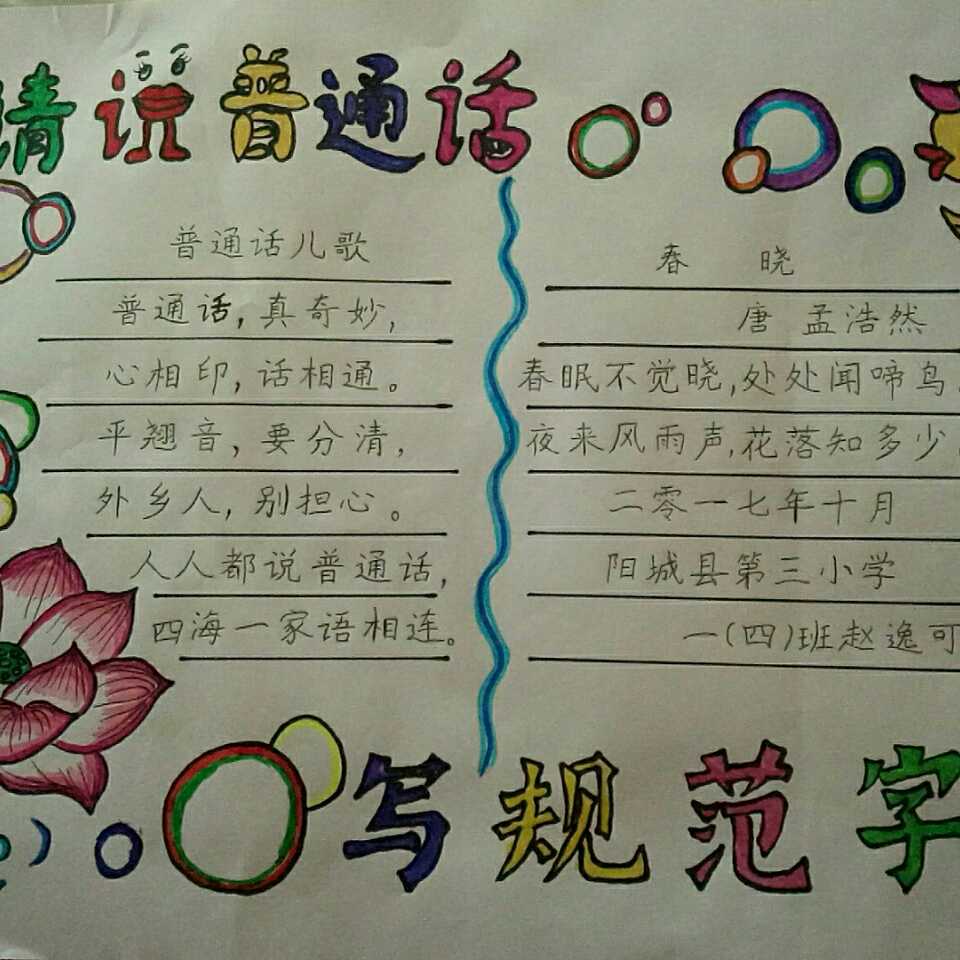 请说普通话
普通话儿歌
普通话,真奇妙,
心相印,话相通。
平翘音,要分清,
外乡人,别担心。
人人都说普通话,
四海一家语相连。
春 晓
唐 孟浩然
春眠不觉晓,处处闻啼鸟
夜来风雨声,花落知多少
二零一七年十月
阳城县第三小学
一(四)班赵逸可
写规范字